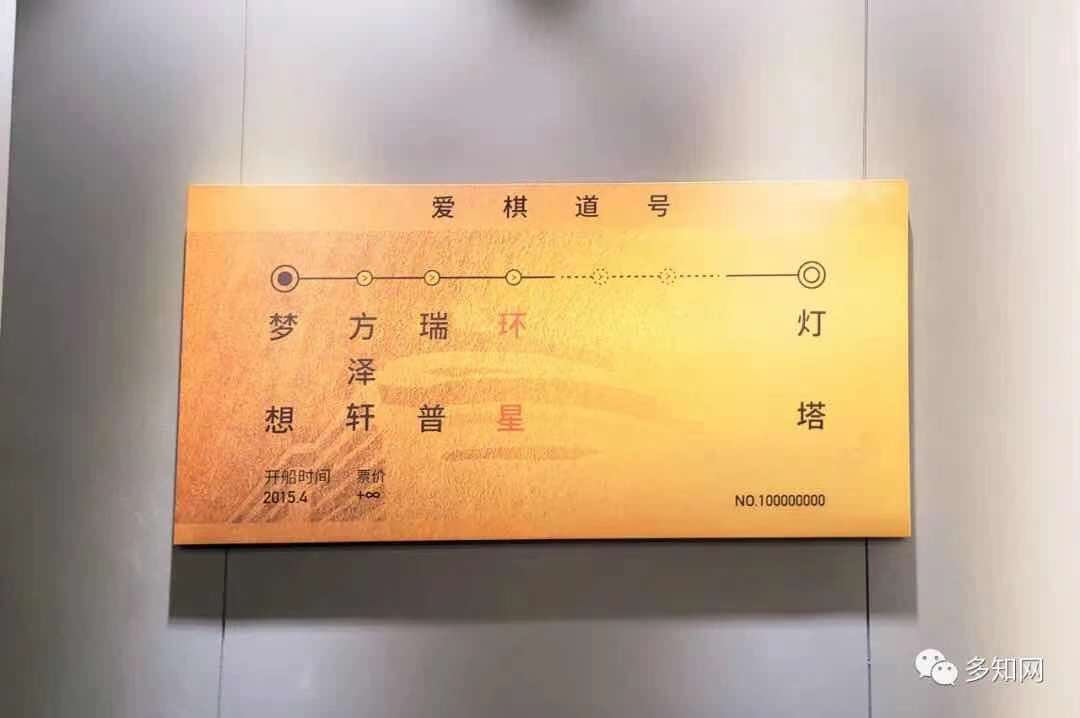 爱棋道号
梦想
方泽轩
瑞普
环星
灯塔
开船时间 票价
2015.4 +∞
NO.100000000
多知网